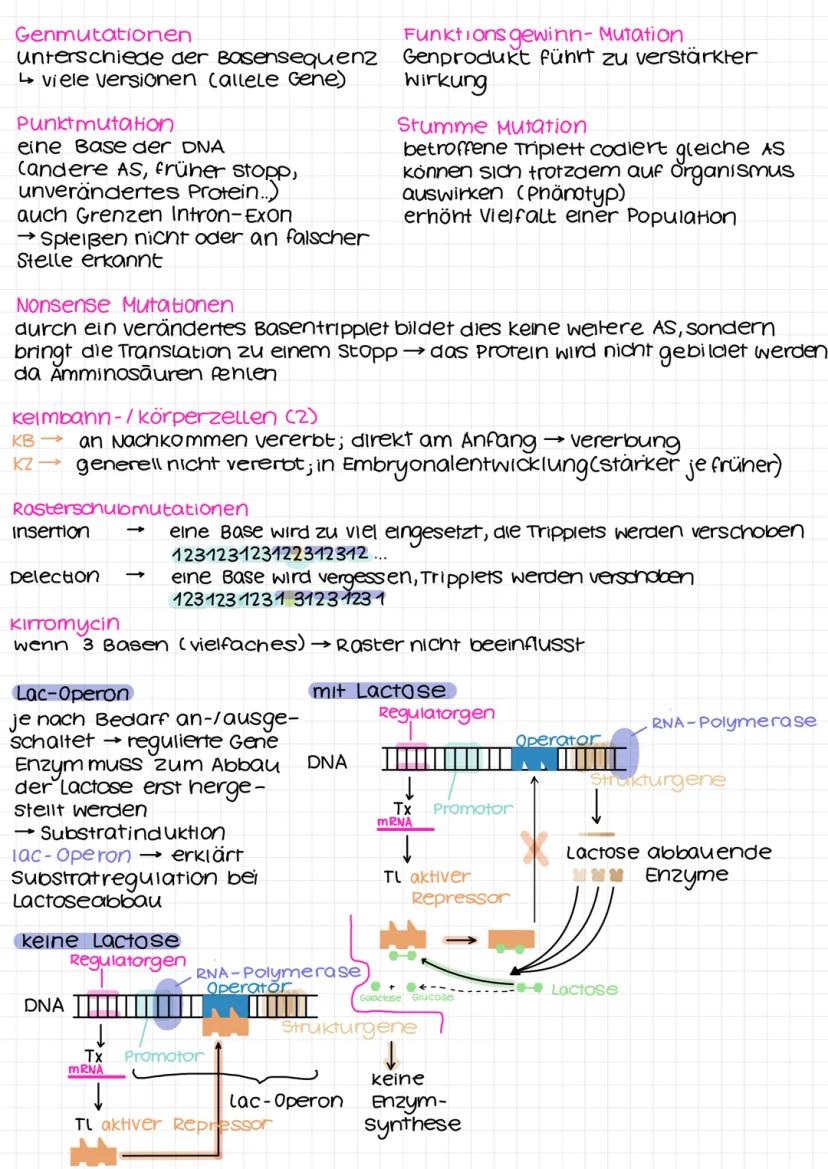 Genmutationen
unterschiede der Basensequenz
↳ viele Versionen (allele Gene)
Funktionsgewinn-Mutation
Genprodukt führt zu verstärkter
Wirkung
Punktmutation
eine Base der DNA
(andere AS, früher stopp,
unverändertes Protein..)
auch Grenzen Intron-Exon
→ Spleißen nicht oder an falscher
Stelle erkannt
Stumme Mutation
betroffene Triplett codiert gleiche AS
können sich trotzdem auf Organismus
auswirken (Phänotyp)
erhöht Vielfalt einer Population
Nonsense Mutationen
durch ein verändertes Basentripplet bildet dies keine weitere AS, sondern
bringt die Translation zu einem Stopp → das Protein wird nicht gebildet werden
da Amminosäuren fehlen
Keimbahn-/Körperzellen (2)
KB → an Nachkommen vererbt; direkt am Anfang → Vererbung
KZ → generell nicht vererbt; in Embryonalentwicklung (stärker je früher)
Rasterschubmutationen
Insertion → eine Base wird zu viel eingesetzt, die Tripplets werden verschoben
123123123122312312 ...
Delection → eine Base wird vergessen, Tripplets werden verschoben
1231231231 31231231
Kirromycin
wenn 3 Basen (vielfaches) → Raster nicht beeinflusst
Lac-Operon
je nach Bedarf an-/ausge-
schaltet → regulierte Gene
Enzym muss zum Abbau
der Lactose erst herge-
stellt werden
→ Substratinduktion
lac-Operon → erklärt
Substratregulation bei
Lactoseabbau
mit Lactose
Regulatorgen
Operator
RNA-Polymerase
DNA
Strukturgene
Promotor
Tx
mRNA
Tl aktiver
Repressor
Lactose abbauende
Enzyme
Lactose
Galactose + Glucose
keine Lactose
Regulatorgen
RNA-Polymerase
Operator
DNA
Strukturgene
Promotor
Tx
mRNA
lac-Operon
Tl aktiver Repressor
keine
Enzym-
Synthese